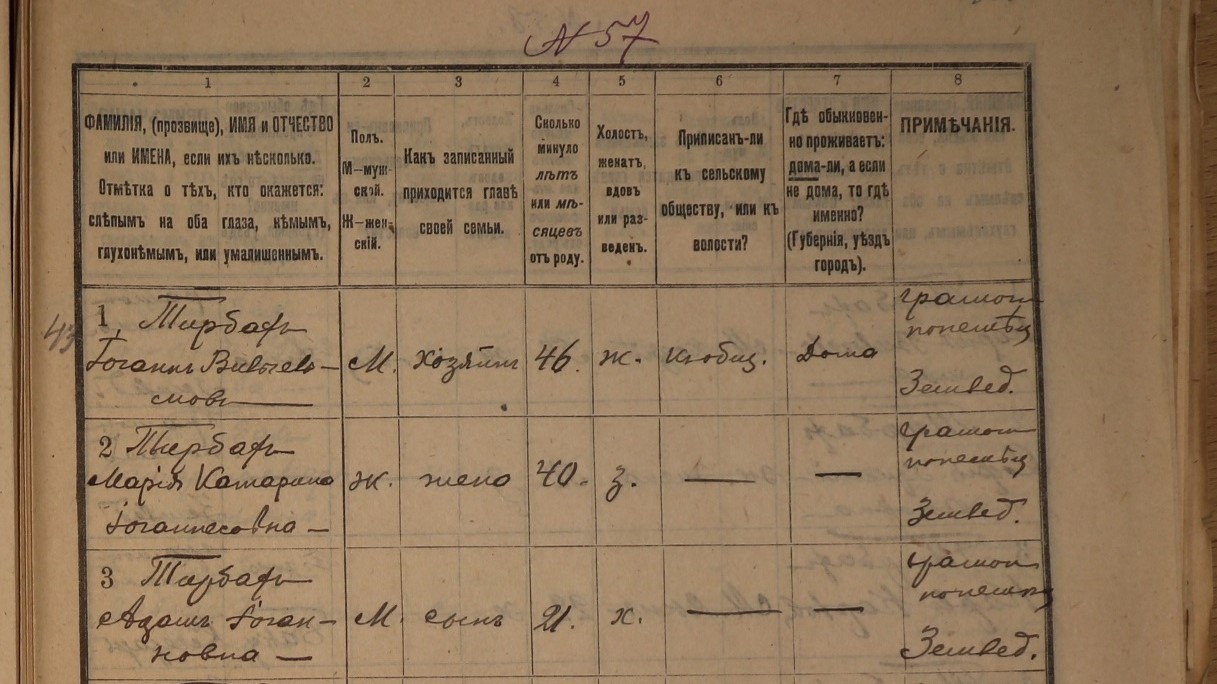 № 57
1 2 3 4 5 6 7 8
ФАМИЛІЯ, (прозвище), ИМЯ и ОТЧЕСТВО
или ИМЕНА, если ихъ нѣсколько.
Отмѣтка о тѣхъ, кто окажется:
слѣпымъ на оба глаза, нѣмымъ,
глухонѣмымъ, или умалишеннымъ.
Полъ.
М—муж-
ской.
Ж—жен-
скій.
Какъ записанный
приходится главѣ
своей семьи.
Сколько
минуло
лѣтъ
или мѣ-
сяцевъ
отъ роду.
Холостъ,
женатъ,
вдовъ
или раз-
веденъ.
Приписанъ-ли
къ сельскому
обществу, или къ
волости?
Гдѣ обыкновен-
но проживаетъ:
дома-ли, а если
не дома, то гдѣ
именно?
(Губернія, уѣздъ
городъ).
ПРИМѢЧАНІЯ.
43
1, Тирбахъ
Іоганъ
М. хозяинъ 46. ж. Дома
грамот
понемѣц
Землед.
2 Тирбахъ
Марія Катарина
Іоганнесовна —
ж. жена 40. з. — —
грамот
понемѣц
Землед.
3 Тирбахъ
Адамъ Іоган-
новна —
М. сынъ 21. х. — —
грамот
понемец
Землед.